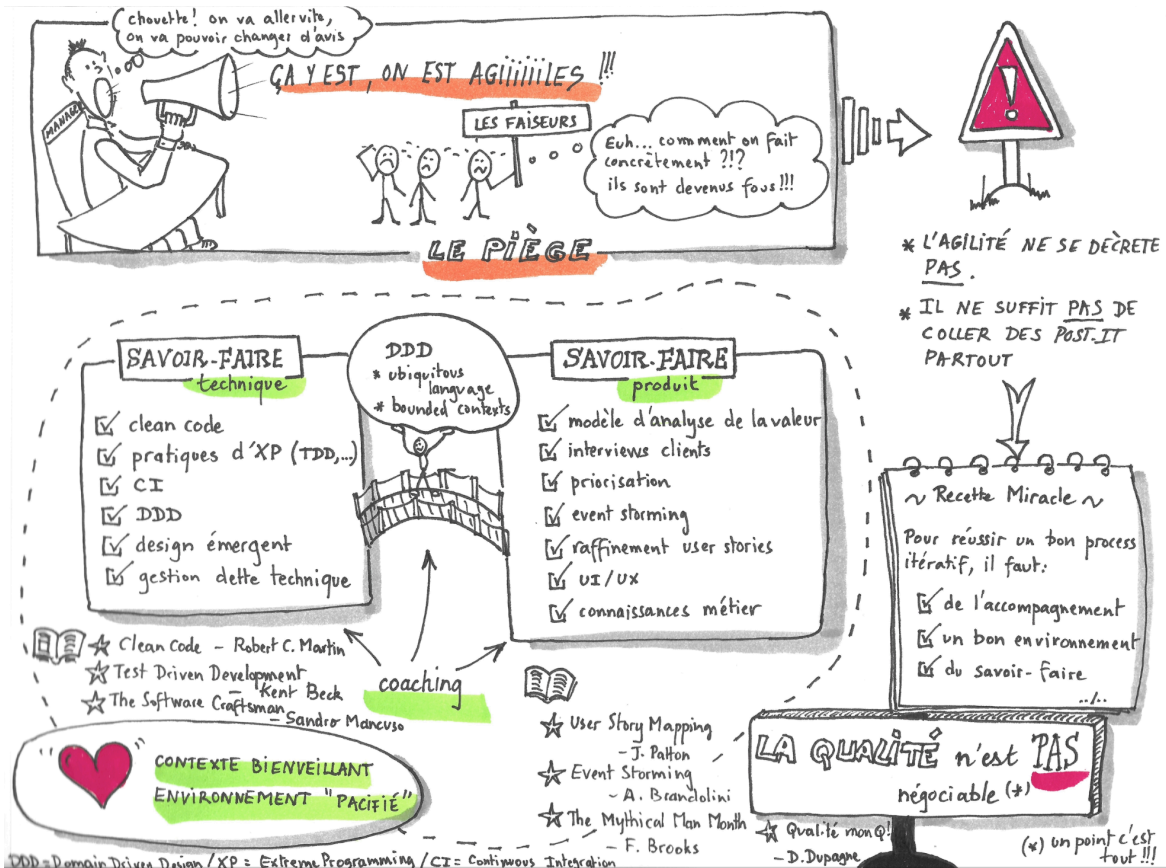 chouette! on va aller vite,
on va pouvoir changer d'avis
MANAGER
ÇA Y EST, ON EST AGiiiiiiLES !!!
LES FAISEURS
Euh... comment on fait
concrètement ?!?
ils sont devenus fous!!!
LE PiÈGE
* L'AGILITÉ NE SE DÉCRETE
PAS.
* IL NE SUFFIT PAS DE
COLLER DES POST-IT
PARTOUT
SAVOIR-FAIRE
technique
clean code
pratiques d'XP (TDD,...)
CI
DDD
design émergent
gestion dette technique
DDD
* ubiquitous
language
* bounded contexts
SAVOIR-FAIRE
produit
modèle d'analyse de la valeur
interviews clients
priorisation
event storming
raffinement user stories
UI/UX
connaissances métier
~ Recette Miracle ~
Pour réussir un bon process
itératif, il faut:
de l'accompagnement
un bon environnement
du savoir-faire
../..
Clean Code - Robert C. Martin
Test Driven Development
- Kent Beck
The Software Craftsman
- Sandro Mancuso
coaching
User Story Mapping
- J. Patton
Event Storming
- A. Brandolini
The Mythical Man Month
- F. Brooks
"CONTEXTE BIENVEILLANT
ENVIRONNEMENT "PACIFIÉ"
LA QUALITÉ n'est PAS
négociable (*)
Qualité mon Q!
- D. Dupagne
(*) un point c'est
tout !!!
DDD = Domain Driven Design / XP = Extreme Programming / CI = Continuous Integration